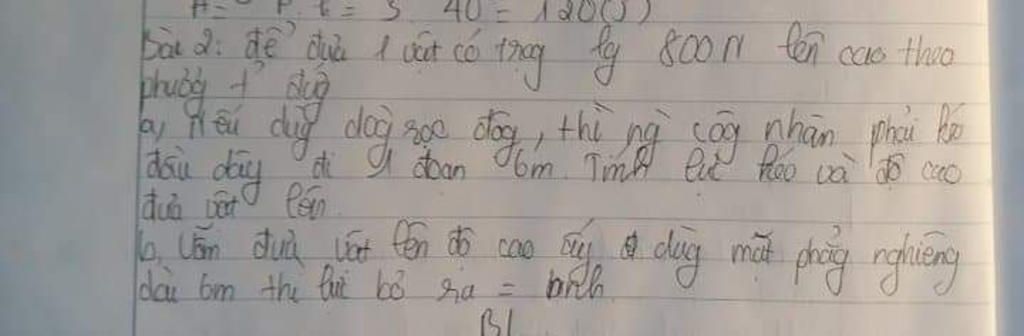 A = P.t = 3. 40 = 120(J)
Bài 2: để đưa 1 vật có trọg lg 800N lên cao theo
phươg t đứg
a, Nếu dùg dòg rọc độg, thì ng côg nhân phải kéo
đầu dây đi 1 đoạn 6m. Tính lực kéo và độ cao
đưa vật lên.
b, Vẫn đưa vật lên độ cao ấy dùg mặt phẳg nghiêng
dài 6m thì lực bỏ ra = bnh
Bl